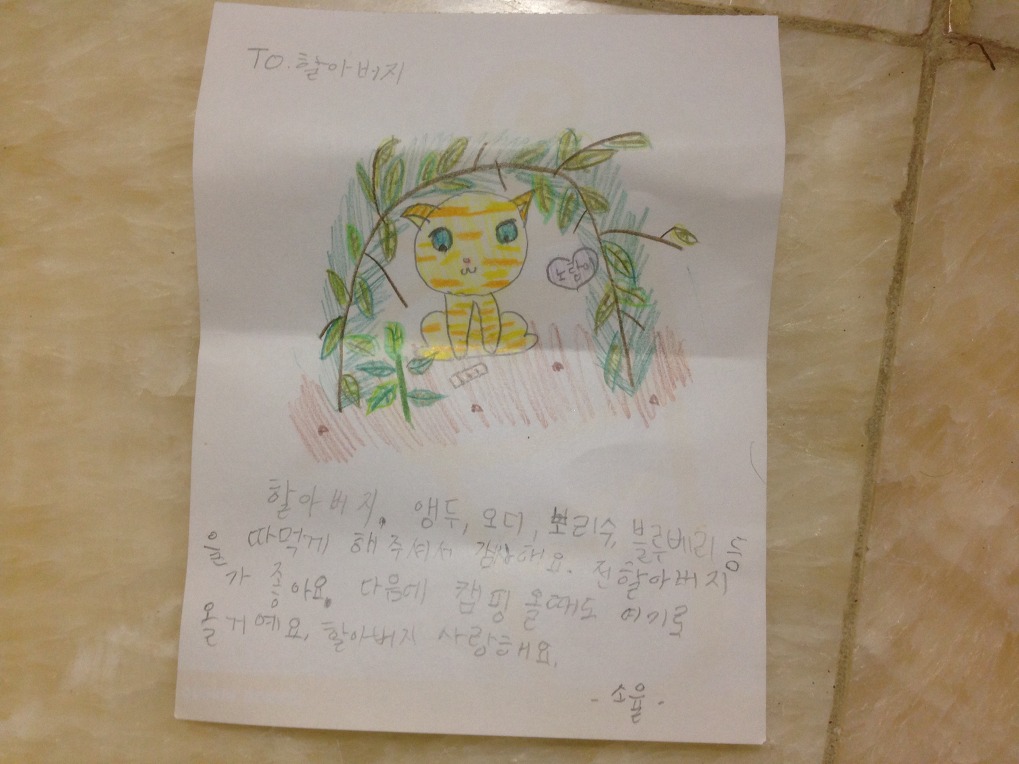 TO. 할아버지
노랑이
할아버지. 앵두, 오디, 보리수, 블루베리 등
을 따먹게 해주셔서 감사해요. 전 할아버지
가 좋아요. 다음에 캠핑 올때도 여기로
올거예요. 할아버지 사랑해요.
- 소율 -